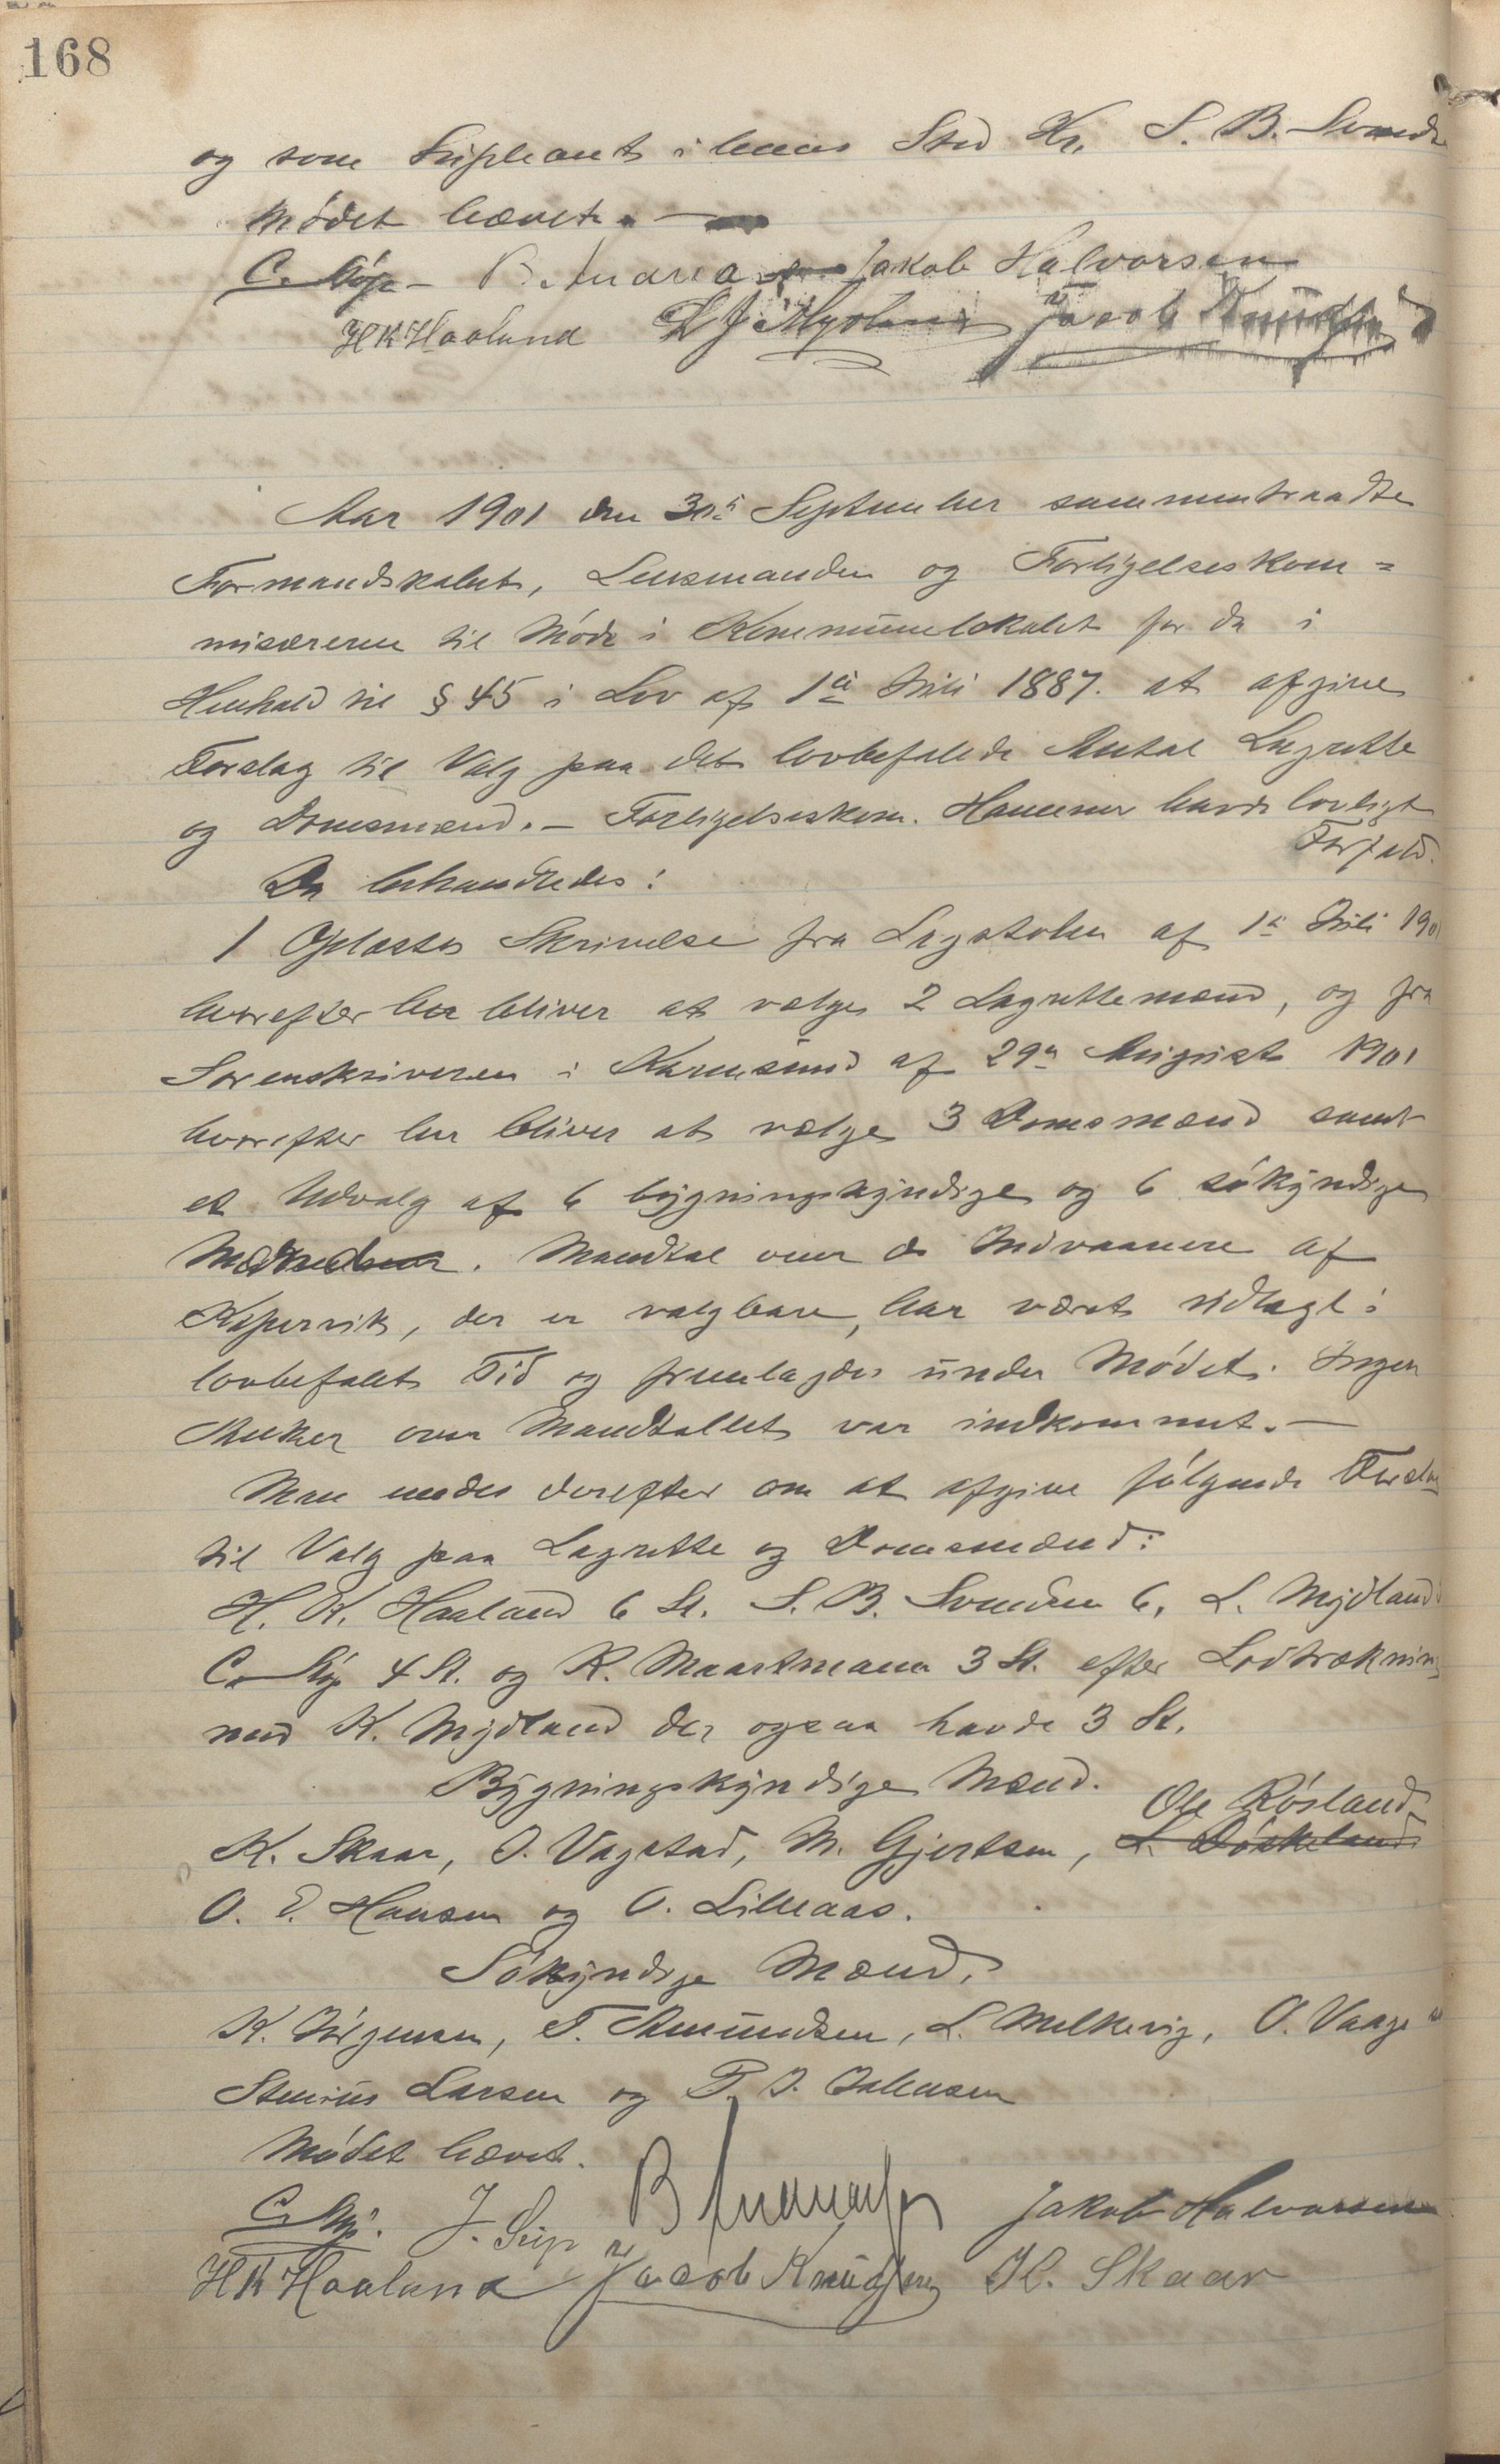 168
og som Supleant i hans Sted Hr. S. B. Svends
Mødet hævet. —
C. Stöp — B. Andrea Jakob Halvorsen
H K Haaland L J Mydland Jacob Knudsen
Aar 1901 den 30te September sammentraadte
Formandskabet, Lensmanden og Forligelseskom=
misæreren til Møde i Kommunelokalet for da i
Henhold til § 45 i Lov af 1ste Juli 1887. at afgive
Forslag til Valg paa det lovbefalede Antal Lagrette
og Domsmænd. — Forligelseskom. Hammer havde lovligt
Forfald.
Da behandledes:
1 Oplæstes Skrivelse fra Lagstolen af 1ste Juli 1901
hvorefter her bliver at vælge 2 Lagrettemænd, og fra
Sorenskriveren i Karmsund af 29de August 1901
hvorefter her bliver at vælge 3 Domsmænd samt
et Udvalg af 6 bygningskyndige og 6 søkyndige
Mænd. Mandtal over de Indvaanere af
Kopervik, der er valgbare, har været udlagt i
lovbefalet Tid og fremlagdes under Mødet. Ingen
Anker over Mandtallet var indkommet. —
Man enedes derefter om at afgive følgende Forslag
til Valg paa Lagrette og Domsmænd:
H. K. Haaland 6 St. S. B. Svendsen 6, L. Mydland
C. Stöp 4 St. og K. Maartmann 3 St. efter Lodtrækning
med K. Mydland der ogsaa havde 3 St.
Bygningskyndige Mænd.
Ole Røsland
K. Skaar, O. Vagstad, M. Gjertsen, L. Døskeland
O. E. Hansen og O. Lillaas.
Søkyndige Mænd.
K. Jørgensen, T. Amundsen, L. Melkevig, O. Vaage
Stenius Larsen og P. J. Johnsen
Mødet hævet.
C. Stöp. J. Seip B Andreassen Jakob Halvorsen
H K Haaland Jacob Knudsen K. Skaar